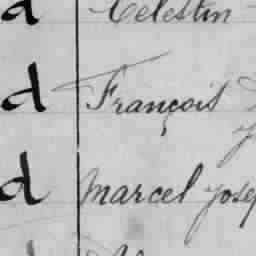 d Celestin
d François
d Marcel Josep